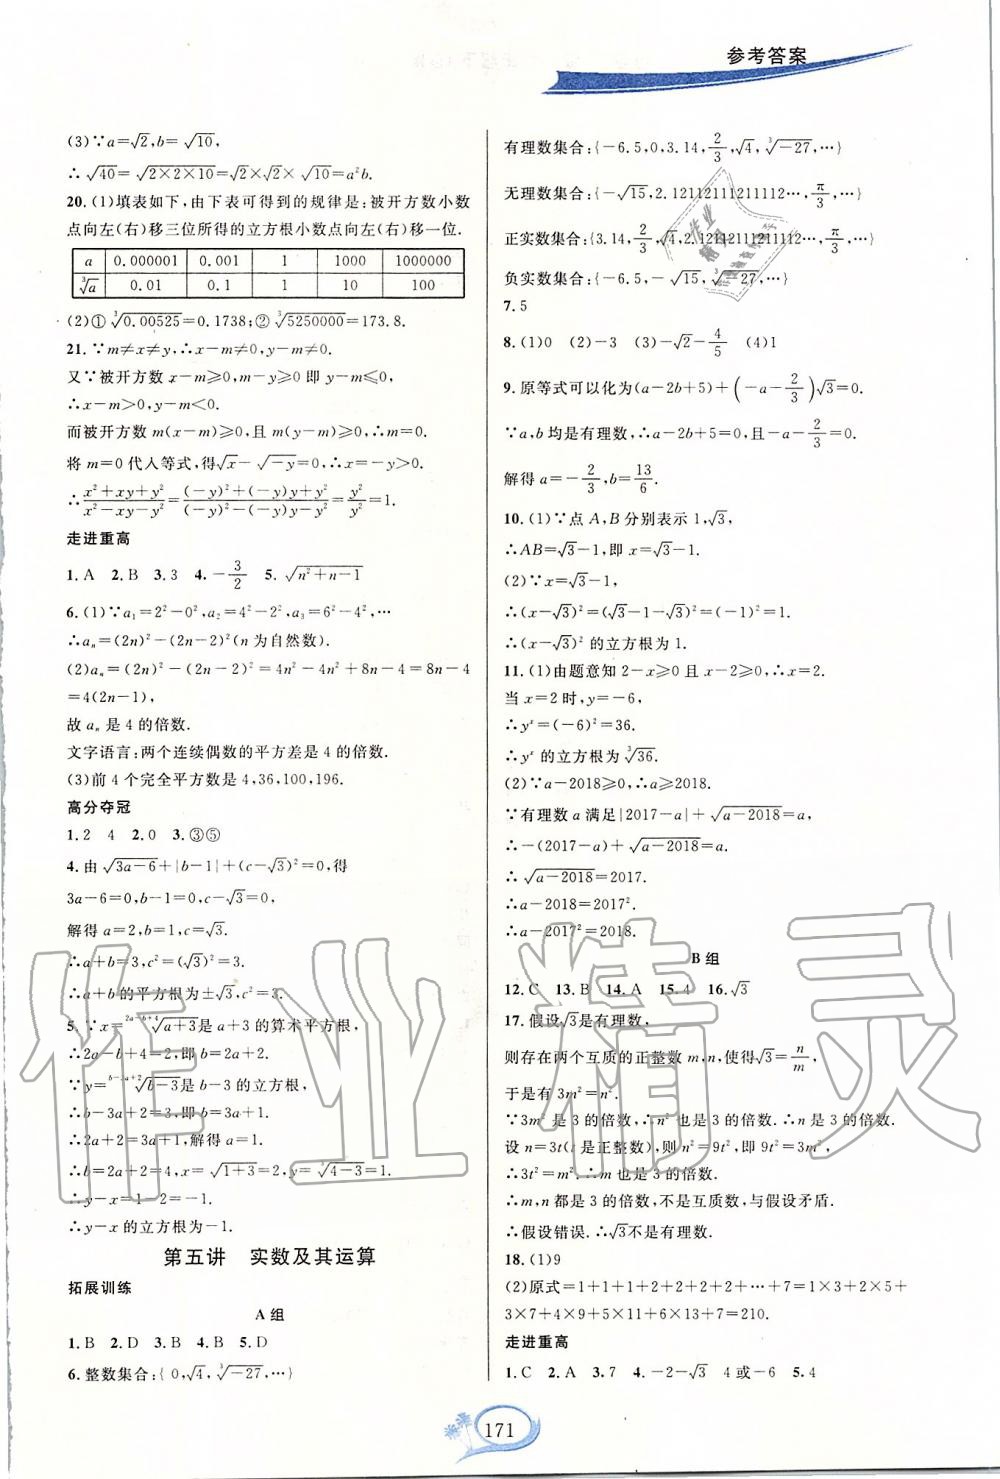 参考答案
(3)∵a=√2,b=√10,
∴√40=√(2×2×10)=√2×√2×√10=a²b.
20.(1)填表如下,由下表可得到的规律是:被开方数小数
点向左(右)移三位所得的立方根小数点向左(右)移一位.
a 0.000001 0.001 1 1000 1000000
∛a 0.01 0.1 1 10 100
(2)①∛0.00525=0.1738;②∛5250000=173.8.
21.∵m≠x≠y,∴x−m≠0,y−m≠0.
又∵被开方数x−m≥0,m−y≥0即y−m≤0,
∴x−m>0,y−m<0.
而被开方数m(x−m)≥0,且m(y−m)≥0,∴m=0.
将m=0代入等式,得√x−√(−y)=0,∴x=−y>0.
∴(x²+xy+y²)/(x²−xy−y²)=((−y)²+(−y)y+y²)/((−y)²−(−y)y−y²)=y²/y²=1.
走进重高
1.A 2.B 3.3 4.−3/2 5.√(n²+n−1)
6.(1)∵a₁=2²−0²,a₂=4²−2²,a₃=6²−4²,…
∴aₙ=(2n)²−(2n−2)²(n为自然数).
(2)aₙ=(2n)²−(2n−2)²=4n²−4n²+8n−4=8n−4
=4(2n−1),
故aₙ是4的倍数.
文字语言:两个连续偶数的平方差是4的倍数.
(3)前4个完全平方数是4,36,100,196.
高分夺冠
1.2 4 2.0 3.③⑤
4.由√(3a−6)+|b−1|+(c−√3)²=0,得
3a−6=0,b−1=0,c−√3=0.
解得a=2,b=1,c=√3.
∴a+b=3,c²=(√3)²=3.
∴a+b的平方根为±√3,c²=3.
5.∵x=²ᵃ⁻ᵇ⁺⁴√(a+3)是a+3的算术平方根,
∴2a−b+4=2,即b=2a+2.
∵y=ᵇ⁻³ᵃ⁺²√(b−3)是b−3的立方根,
∴b−3a+2=3,即b=3a+1.
∴2a+2=3a+1,解得a=1.
∴b=2a+2=4,x=√(1+3)=2,y=∛(4−3)=1.
∴y−x=1−2=−1.
∴y−x的立方根为−1.
第五讲 实数及其运算
拓展训练
A组
1.B 2.D 3.B 4.B 5.D
6.整数集合:{0,√4,∛−27,…}
有理数集合:{−6.5,0,3.14,2/3,√4,∛−27,…}
无理数集合:{−√15,2.12112111211112…,π/3,…}
正实数集合:{3.14,2/3,√4,2.12112111211112…,π/3,…}
负实数集合:{−6.5,−√15,∛−27,…}
7.5
8.(1)0 (2)−3 (3)−√2−4/5 (4)1
9.原等式可以化为(a−2b+5)+(−a−2/3)√3=0.
∵a,b均是有理数,∴a−2b+5=0,且−a−2/3=0.
解得a=−2/3,b=13/6.
10.(1)∵点A,B分别表示1,√3,
∴AB=√3−1,即x=√3−1.
(2)∵x=√3−1,
∴(x−√3)²=(√3−1−√3)²=(−1)²=1.
∴(x−√3)²的立方根为1.
11.(1)由题意知2−x≥0且x−2≥0,∴x=2.
当x=2时,y=−6,
∴yˣ=(−6)²=36.
∴yˣ的立方根为∛36.
(2)∵a−2018≥0,∴a≥2018.
∵有理数a满足|2017−a|+√(a−2018)=a,
∴−(2017−a)+√(a−2018)=a.
∴√(a−2018)=2017.
∴a−2018=2017².
∴a−2017²=2018.
B组
12.C 13.B 14.A 15.4 16.√3
17.假设√3是有理数,
则存在两个互质的正整数m,n,使得√3=n/m,
于是有3m²=n².
∵3m²是3的倍数,∴n²也是3的倍数.∴n是3的倍数.
设n=3t(t是正整数),则n²=9t²,即9t²=3m²,
∴3t²=m².∴m也是3的倍数.
∴m,n都是3的倍数,不是互质数,与假设矛盾.
∴假设错误.∴√3不是有理数.
18.(1)9
(2)原式=1+1+1+2+2+2+2+…+7=1×3+2×5+
3×7+4×9+5×11+6×13+7×7=210.
走进重高
1.C 2.A 3.7 4.−2−√3 4或−6 5.4
171
作业精灵